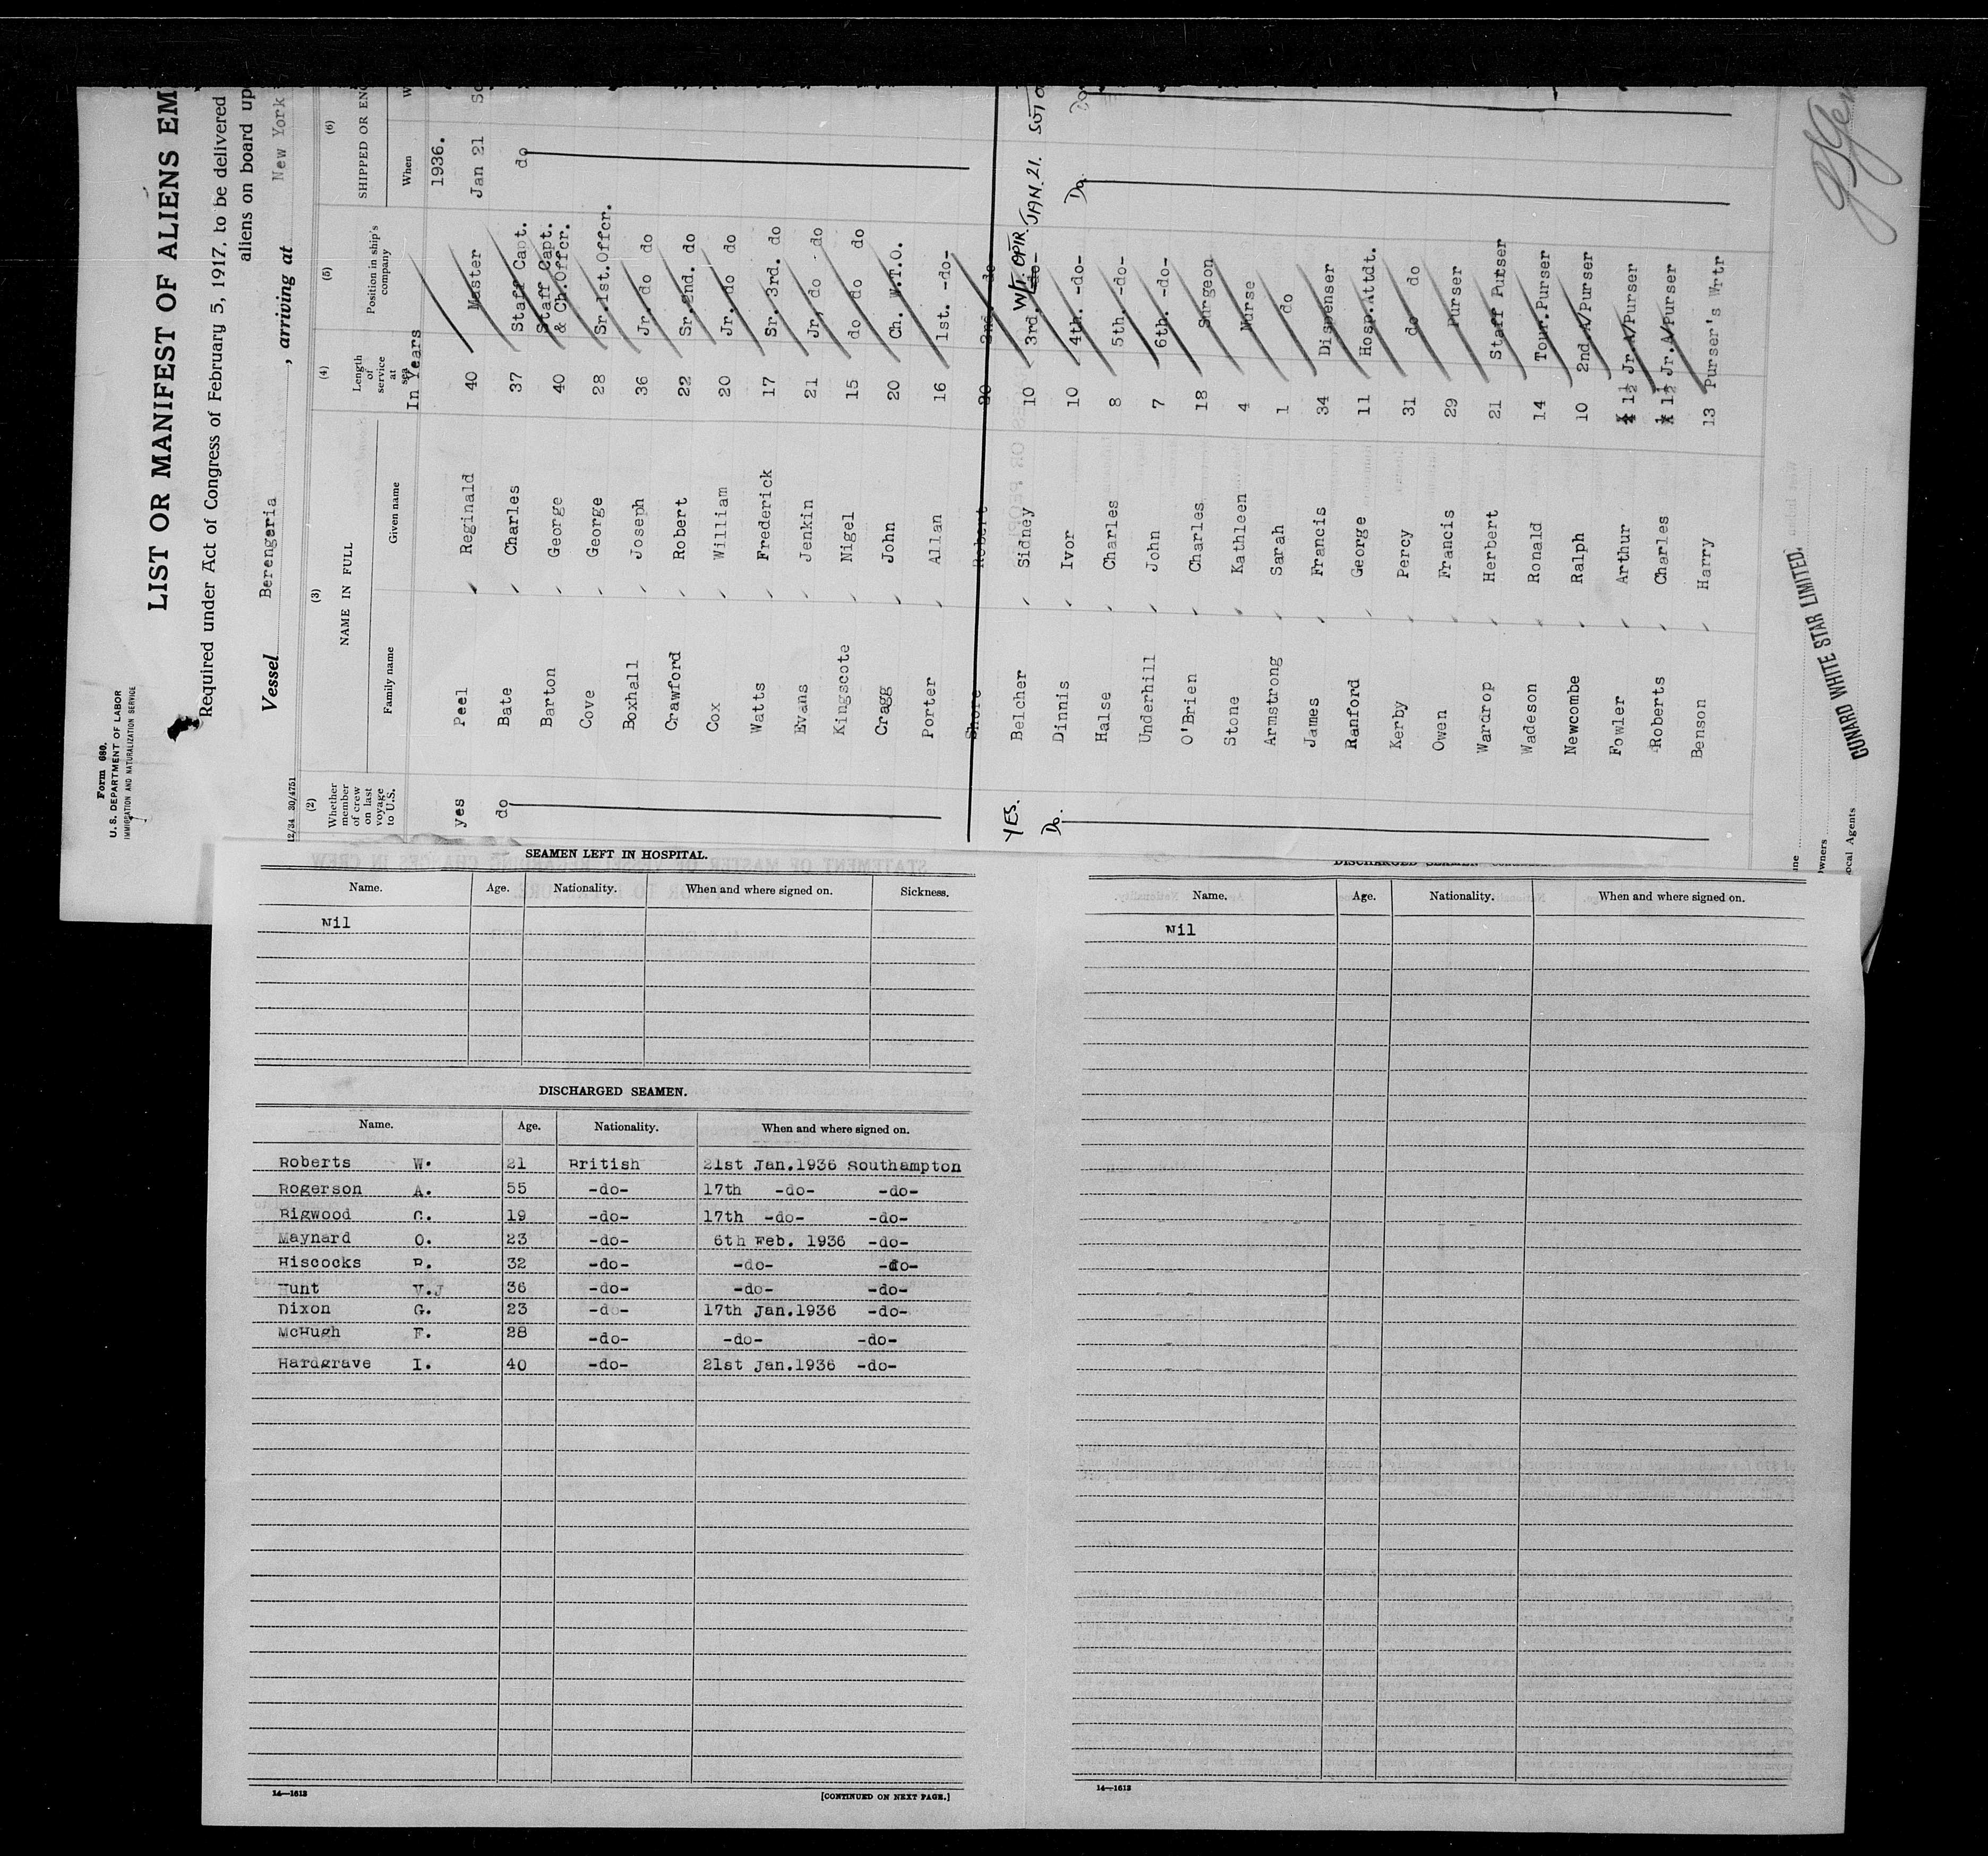 Form 680.
U. S. DEPARTMENT OF LABOR
IMMIGRATION AND NATURALIZATION SERVICE
LIST OR MANIFEST OF ALIENS EM
Required under Act of Congress of February 5, 1917, to be delivered
aliens on board up
Vessel Berengeria , arriving at New York
12/34 30/4751
(2) (3) (4) (5) (6)
Whether member of crew on last voyage to U.S. NAME IN FULL Length of service at sea Position in ship's company SHIPPED OR ENG
Family name Given name When W
In Years 1936.
yes Peel Reginald 40 Master Jan 21 So
do Bate Charles 37 Staff Capt. do
Barton George 40 Staff Capt. & Ch.Offcr.
Cove George 28 Sr.1st.Offcr.
Boxhall Joseph 36 Jr. do do
Crawford Robert 22 Sr.2nd. do
Cox William 20 Jr. do do
Watts Frederick 17 Sr. 3rd. do
Evans Jenkin 21 Jr, do do
Kingscote Nigel 15 do do do
Cragg John 20 Ch. W.T.O.
Porter Allan 16 1st. -do-
Shore Robert 20 2nd do
YES. Belcher Sidney 10 3rd. -do- W/T. OPTR. JAN. 21. SOTO
Do. Dinnis Ivor 10 4th. -do- Do. Do.
Halse Charles 8 5th. -do-
Underhill John 7 6th. -do-
O'Brien Charles 18 Surgeon
Stone Kathleen 4 Nurse
Armstrong Sarah 1 do
James Francis 34 Dispenser
Ranford George 11 Hosp.Attdt.
Kerby Percy 31 do do
Owen Francis 29 Purser
Wardrop Herbert 21 Staff Purser
Wadeson Ronald 14 Tour.Purser
Newcombe Ralph 10 2nd.A/Purser
Fowler Arthur 1½ Jr.A/Purser
Roberts Charles 1½ Jr.A/Purser
Benson Harry 13 Purser's Wrtr
ine
wners
ocal Agents CUNARD WHITE STAR LIMITED.
SEAMEN LEFT IN HOSPITAL.
Name. Age. Nationality. When and where signed on. Sickness.
Nil
DISCHARGED SEAMEN.
Name. Age. Nationality. When and where signed on.
Roberts W. 21 British 21st Jan.1936 Southampton
Rogerson A. 55 -do- 17th -do- -do-
Bigwood C. 19 -do- 17th -do- -do-
Maynard O. 23 -do- 6th Feb. 1936 -do-
Hiscocks R. 32 -do- -do- -do-
Hunt V.J 36 -do- -do- -do-
Dixon G. 23 -do- 17th Jan.1936 -do-
McHugh F. 28 -do- -do- -do-
Hardgrave I. 40 -do- 21st Jan.1936 -do-
14—1613 [CONTINUED ON NEXT PAGE.]
Name. Age. Nationality. When and where signed on.
Nil
14—1613